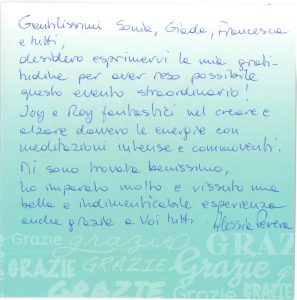 Gentilissimi Sonia, Giada, Francesca
e tutti,
desidero esprimervi la mia grati-
tudine per aver reso possibile
questo evento straordinario!
Joy e Roy fantastici nel creare e
alzare davvero le energie con
meditazioni intense e commoventi.
Mi sono trovata benissimo,
ho imparato molto e vissuto una
bella e indimenticabile esperienza
anche grazie a Voi tutti. Alessia
Grazie grazie GRAZ
GRAZIE GRAZIE Grazie